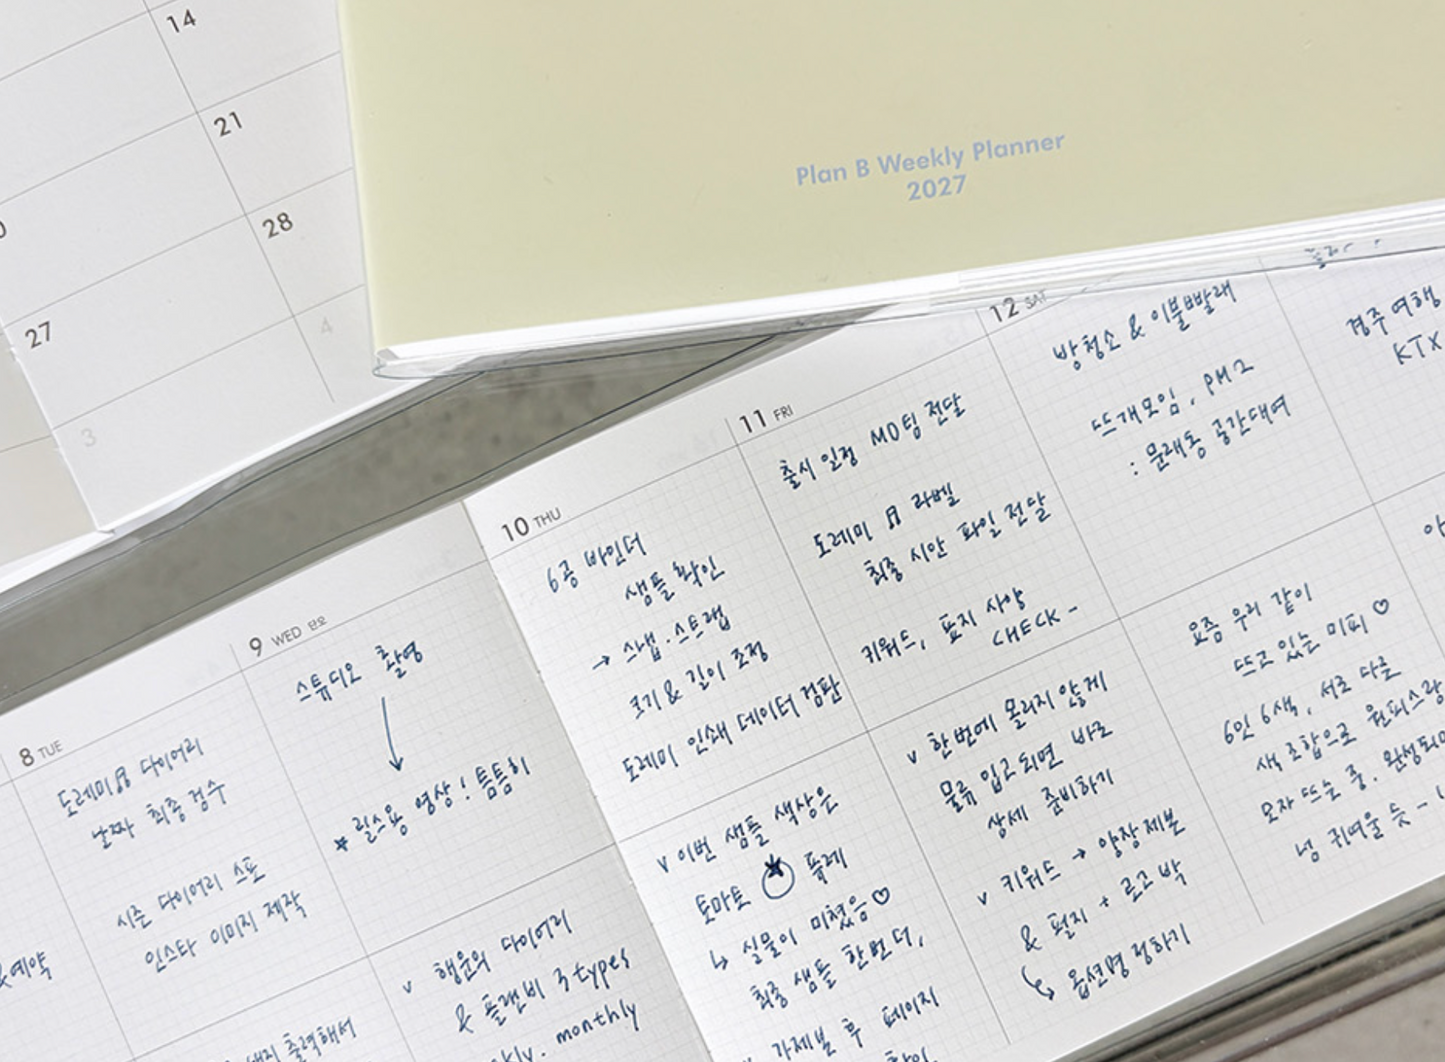 14
21
28
27
4
3
Plan B Weekly Planner
2027
8 TUE
도레미 다이어리
날짜 최종 검수
시즌 다이어리 스포
인스타 이미지 제작
예약
출력해서
9 WED 단오
스튜디오 촬영
릴스용 영상! 틈틈히
v 행운의 다이어리
& 플랜비 3 types
monthly
10 THU
6공 바인더
샘플 확인
→ 스냅·스트랩
크기 & 길이 조정
도레미 인쇄 데이터 검판
v 이번 샘플 색상은
토마토 퓨레
↳ 실물이 미쳤음♡
최종 샘플 한번 더,
가제본 후 페이지
확인
11 FRI
출시 일정 MD팀 전달
도레미 라벨
최종 시안 파일 전달
키워드, 표지 사양
CHECK -
v 한번에 몰리지 않게
물류 입고되면 바로
상세 준비하기
v 키워드 → 양장제본
& 펄지 + 로고 박
옵션명 정하기
12 SAT
방청소 & 이불빨래
뜨개모임, PM 2
: 문래동 공간대여
요즘 우리 같이
뜨고 있는 미피 ♡
6인 6색, 서로 다른
색 조합으로 원피스랑
모자 뜨는 중. 완성되면
넘 귀여울 듯 -
경주 여행
KTX